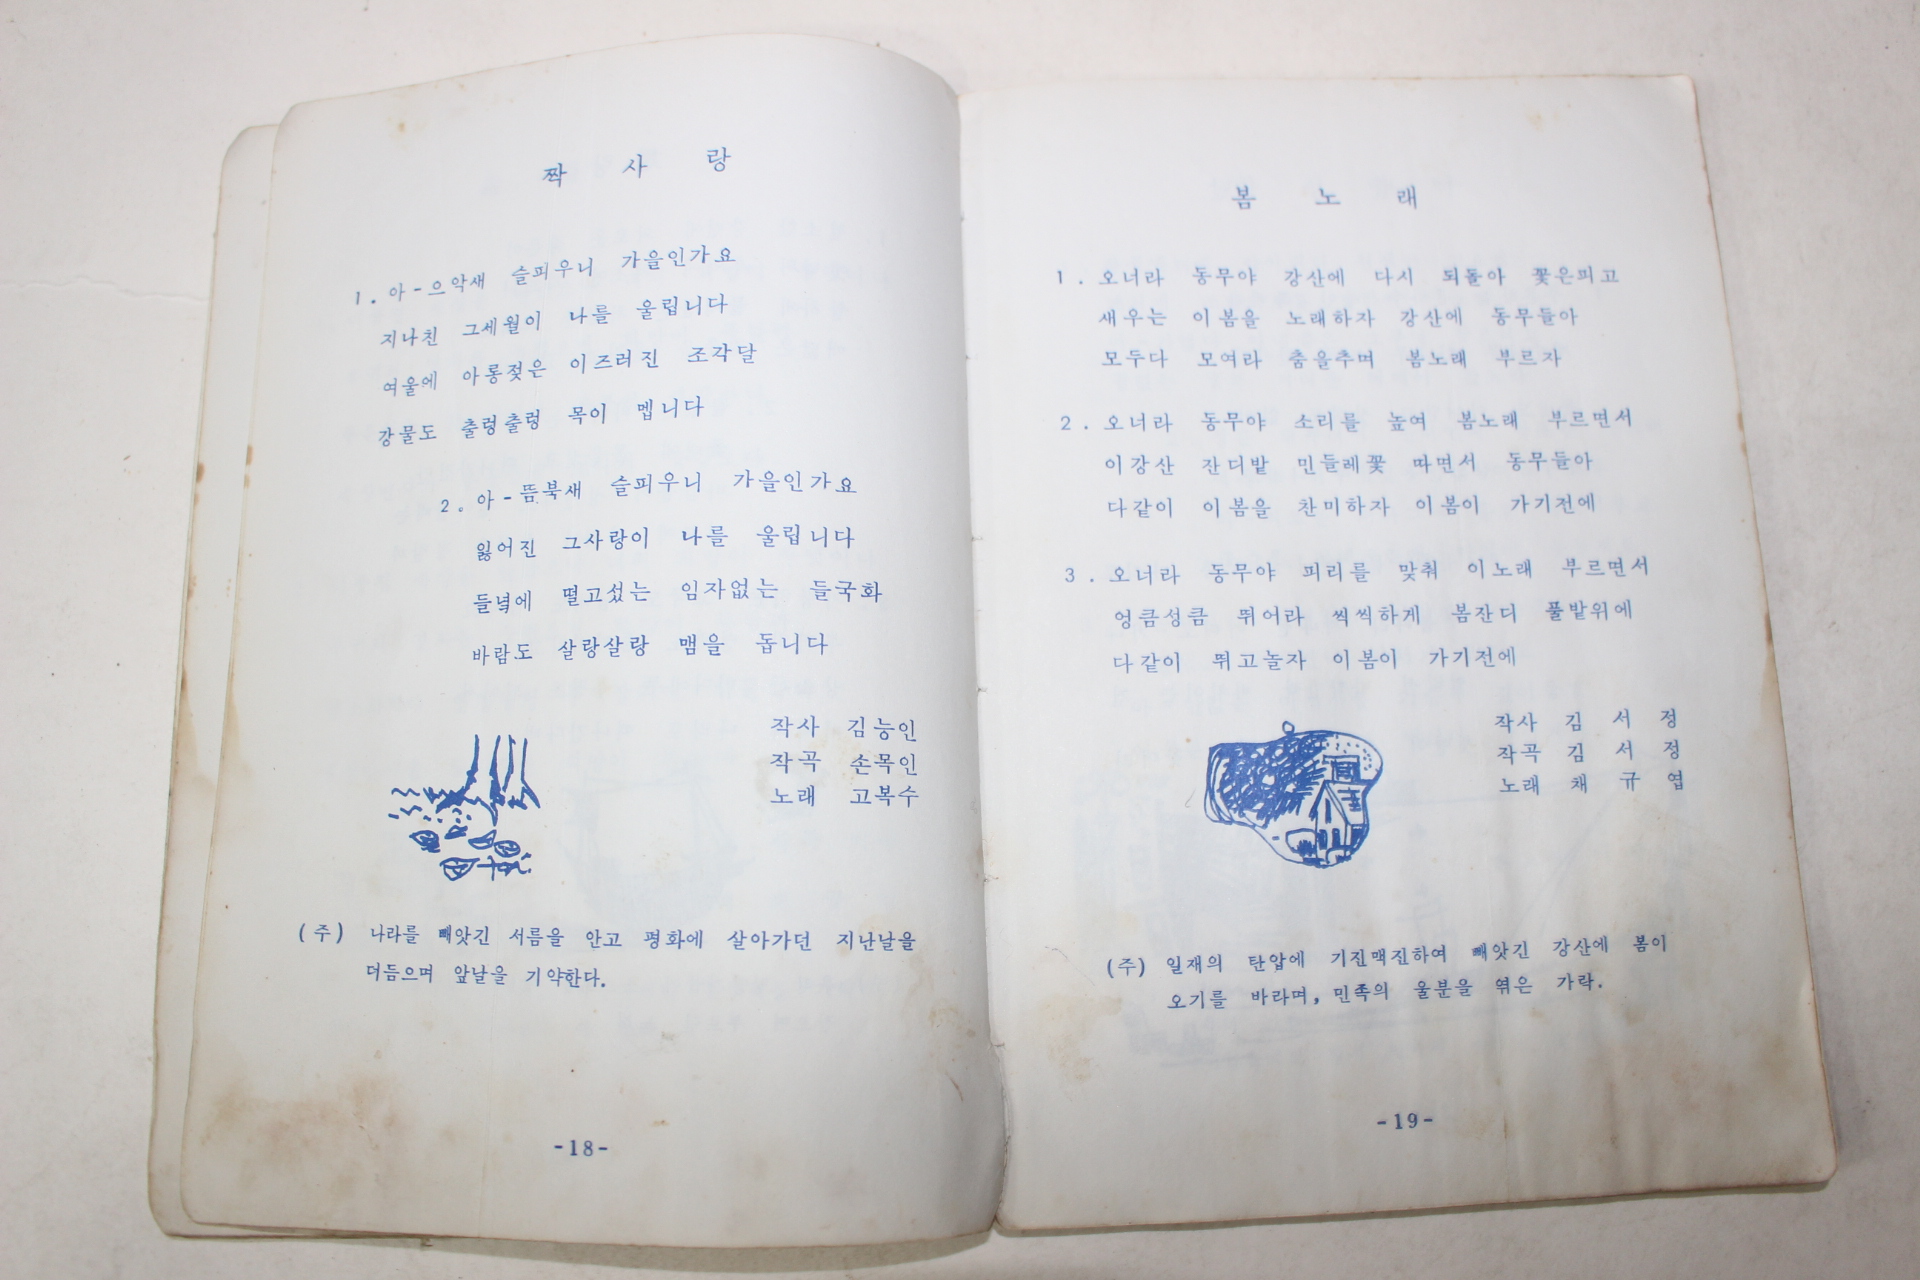 짝 사 랑
1. 아-으악새 슬피우니 가을인가요
지나친 그세월이 나를 울립니다
여울에 아롱젖은 이즈러진 조각달
강물도 출렁출렁 목이 멥니다
2. 아-뜸북새 슬피우니 가을인가요
잃어진 그사랑이 나를 울립니다
들녘에 떨고섰는 임자없는 들국화
바람도 살랑살랑 맴을 돕니다
작사 김능인
작곡 손목인
노래 고복수
(주) 나라를 빼앗긴 서름을 안고 평화에 살아가던 지난날을
더듬으며 앞날을 기약한다.
-18-
봄 노 래
1. 오너라 동무야 강산에 다시 되돌아 꽃은피고
새우는 이봄을 노래하자 강산에 동무들아
모두다 모여라 춤을추며 봄노래 부르자
2. 오너라 동무야 소리를 높여 봄노래 부르면서
이강산 잔디밭 민들레꽃 따면서 동무들아
다같이 이봄을 찬미하자 이봄이 가기전에
3. 오너라 동무야 피리를 맞춰 이노래 부르면서
엉큼성큼 뛰어라 씩씩하게 봄잔디 풀밭위에
다같이 뛰고놀자 이봄이 가기전에
작사 김 서 정
작곡 김 서 정
노래 채 규 엽
(주) 일재의 탄압에 기진맥진하여 빼앗긴 강산에 봄이
오기를 바라며, 민족의 울분을 엮은 가락.
-19-